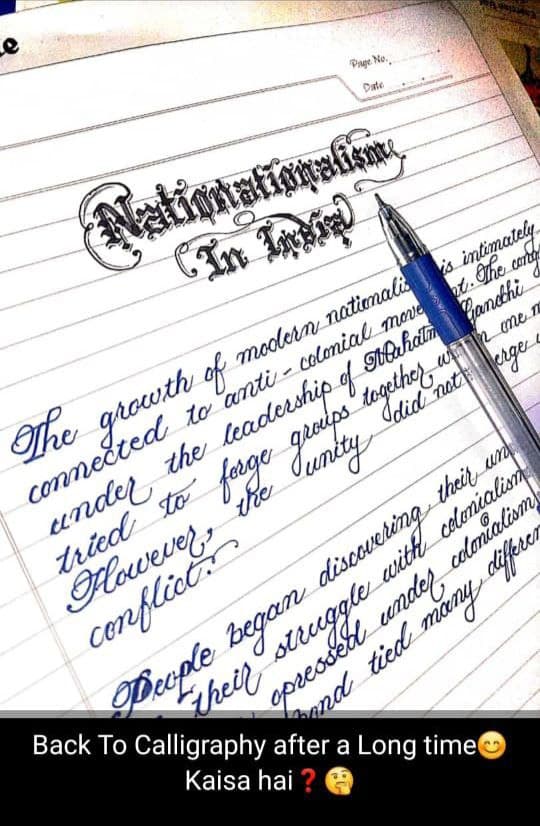 Page No.
Date
Nationationalism
In India
The growth of modern nationalis is intimately
connected to anti-colonial move nt. The cong
under the leadership of Mahatm Gandhi
tried to forge groups together w n one m
However, the unity did not erge
conflict.
People began discovering their un
their struggle with colonialism
opressed under colonialism
tied many differen
Back To Calligraphy after a Long time😊
Kaisa hai❓🤔